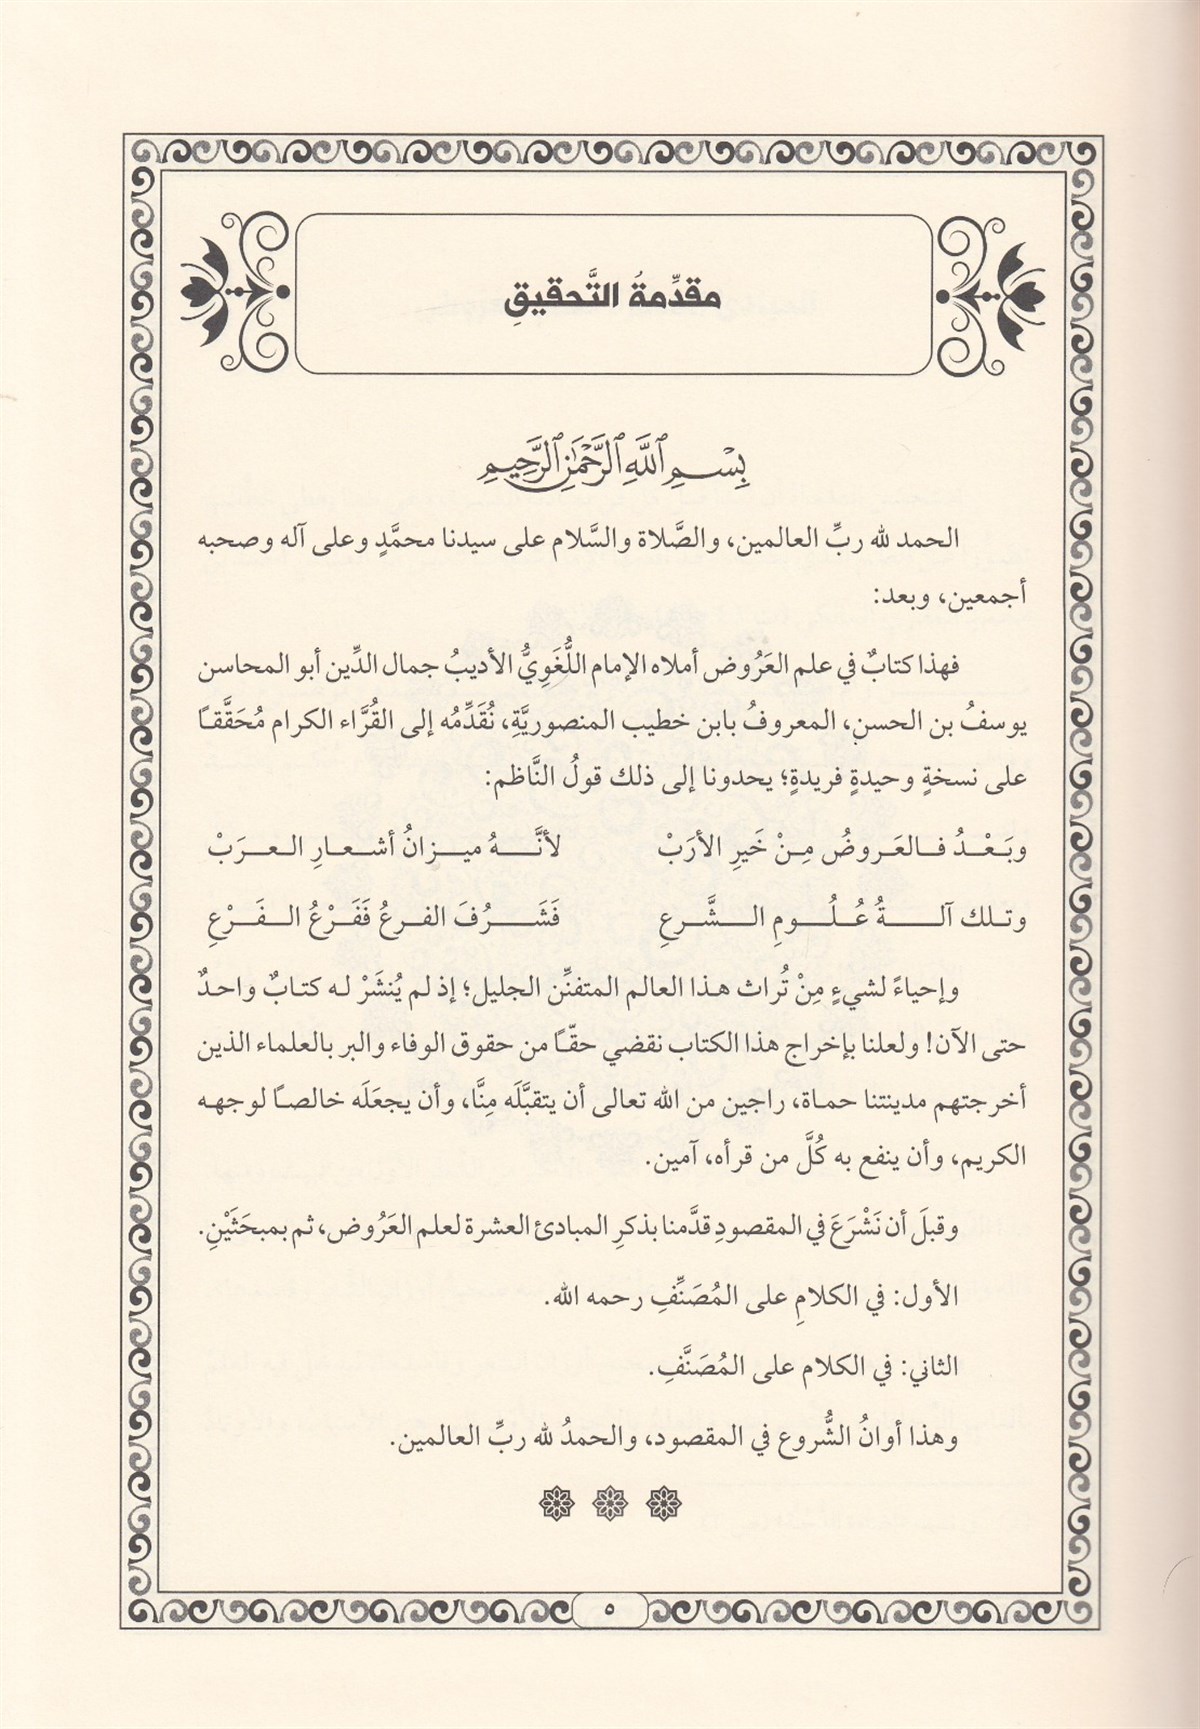 مقدِّمةُ التَّحقيقِ
بِسْمِ اللَّهِ الرَّحْمَٰنِ الرَّحِيمِ
الحمد لله ربِّ العالمين، والصَّلاة والسَّلام على سيدنا محمَّدٍ وعلى آله وصحبه
أجمعين، وبعد:
فهذا كتابٌ في علم العَرُوض أملاه الإمام اللُّغَوِيُّ الأديبُ جمال الدِّين أبو المحاسن
يوسفُ بن الحسن، المعروفُ بابن خطيب المنصوريَّةِ، نُقَدِّمُه إلى القُرَّاء الكرام مُحَقَّقـًا
على نسخةٍ وحيدةٍ فريدةٍ؛ يحدونا إلى ذلك قولُ النَّاظم:
وبَـعْـدُ فـالعَـروضُ مِـنْ خَيرِ الأرَبْ لأنَّـــهُ ميـــزانُ أشـعــارِ الـعــرَبْ
وتـلك آلـــةُ عُـلُــومِ الــشَّــرعِ فَشَـــرُفَ الفـرعُ فَفَـرْعُ الــفَــرْعِ
وإحياءً لشيءٍ مِنْ تُراث هـذا العالم المتفنِّن الجليل؛ إذ لم يُنشَرْ لـه كتـابٌ واحـدٌ
حتى الآن! ولعلنا بإخراج هذا الكتاب نقضي حقّـًا من حقوق الوفاء والبر بالعلماء الذين
أخرجتهم مدينتنا حمـاة، راجين من الله تعالى أن يتقبَّلَه مِنَّا، وأن يجعَلَه خالصـًا لوجهـه
الكريم، وأن ينفع به كُلَّ من قرأه، آمين.
وقبلَ أن نَشْرَعَ في المقصودِ قدَّمنا بذكرِ المبادئ العشرة لعلم العَرُوض، ثم بمبحَثَيْنِ.
الأول: في الكلامِ على المُصَنِّفِ رحمه الله.
الثاني: في الكلام على المُصَنَّفِ.
وهذا أوانُ الشُّروع في المقصود، والحمدُ لله ربِّ العالمين.
٥